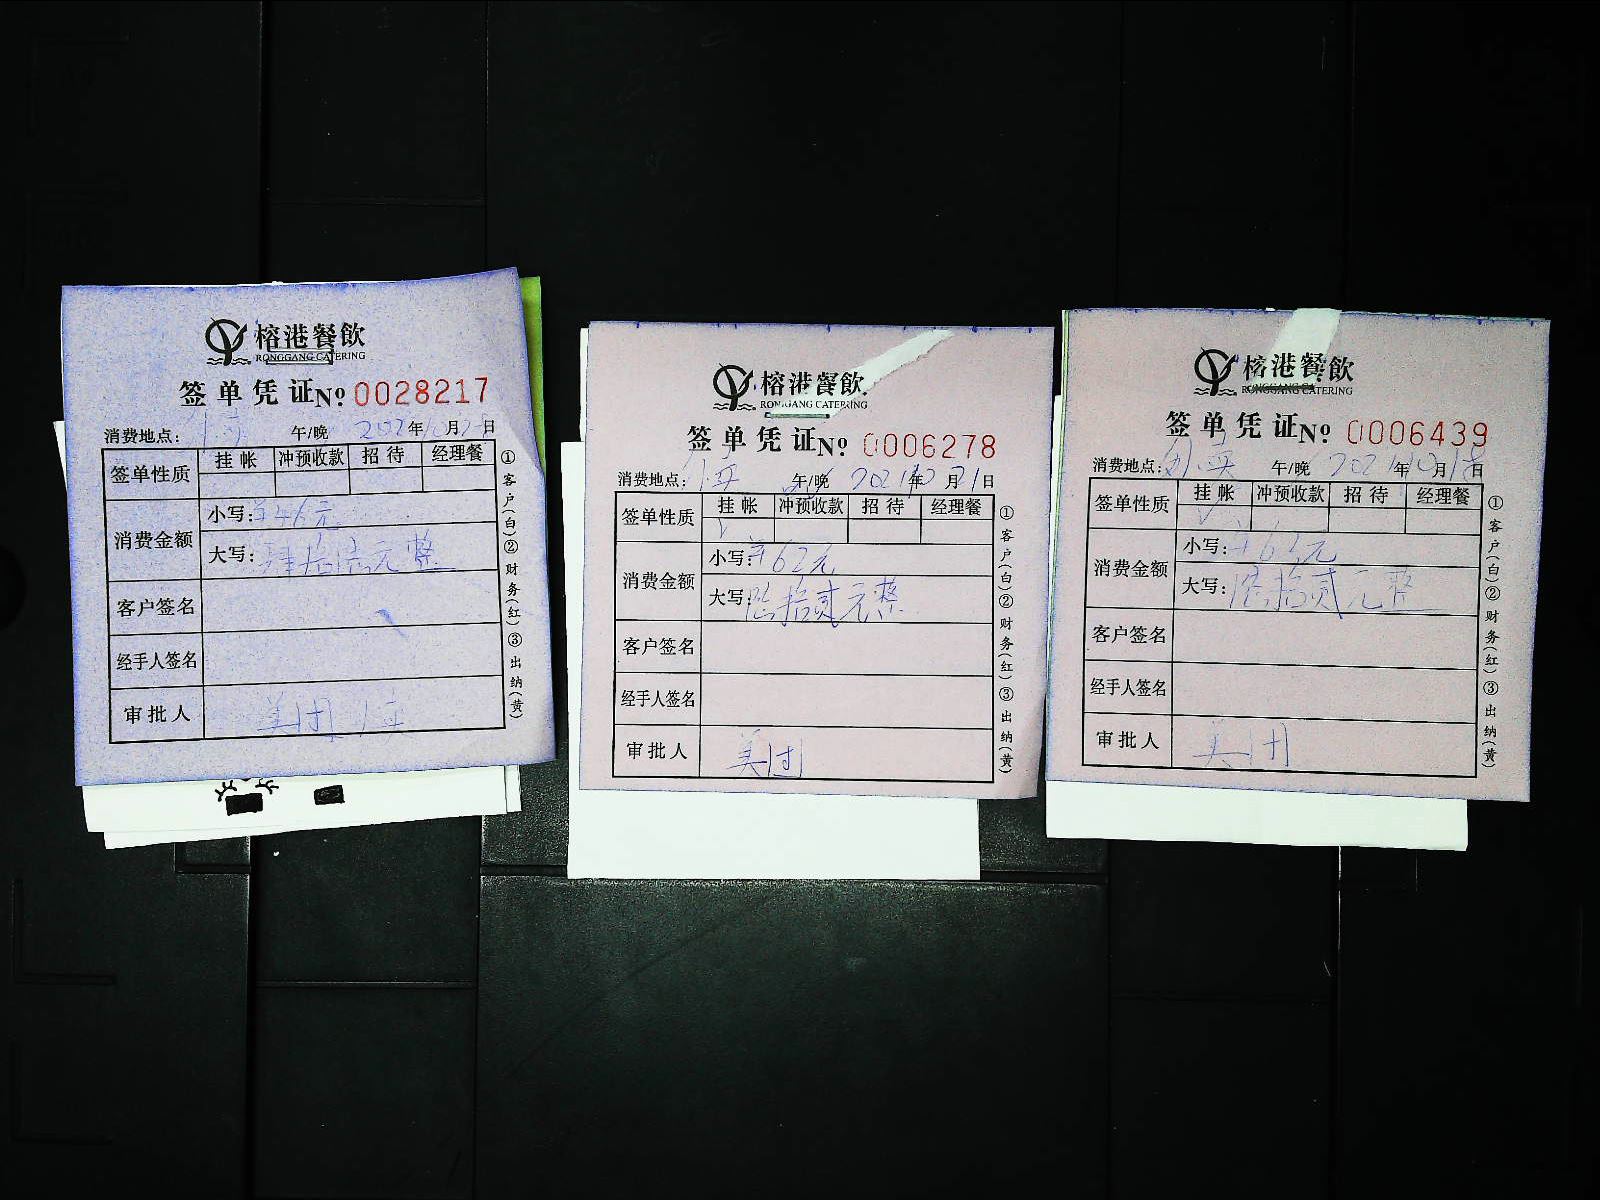 榕港餐飲
RONGGANG CATERING
签单凭证№ 0028217
消费地点: 午/晚 年 月 日
签单性质 挂帐 冲预收款 招待 经理餐
消费金额
小写: ¥46元
大写: 肆拾陆元整
客户签名
经手人签名
审批人 美团
①客户(白)②财务(红)③出纳(黄)
榕港餐飲
RONGGANG CATERING
签单凭证№ 0006278
消费地点: 午/晚 2021年10月21日
签单性质 挂帐 冲预收款 招待 经理餐
√
消费金额
小写: ¥62元
大写: 陆拾贰元整
客户签名
经手人签名
审批人 美团
①客户(白)②财务(红)③出纳(黄)
榕港餐飲
RONGGANG CATERING
签单凭证№ 0006439
消费地点: 午/晚 2021年10月18日
签单性质 挂帐 冲预收款 招待 经理餐
√
消费金额
小写: ¥62元
大写: 陆拾贰元整
客户签名
经手人签名
审批人 美团
①客户(白)②财务(红)③出纳(黄)